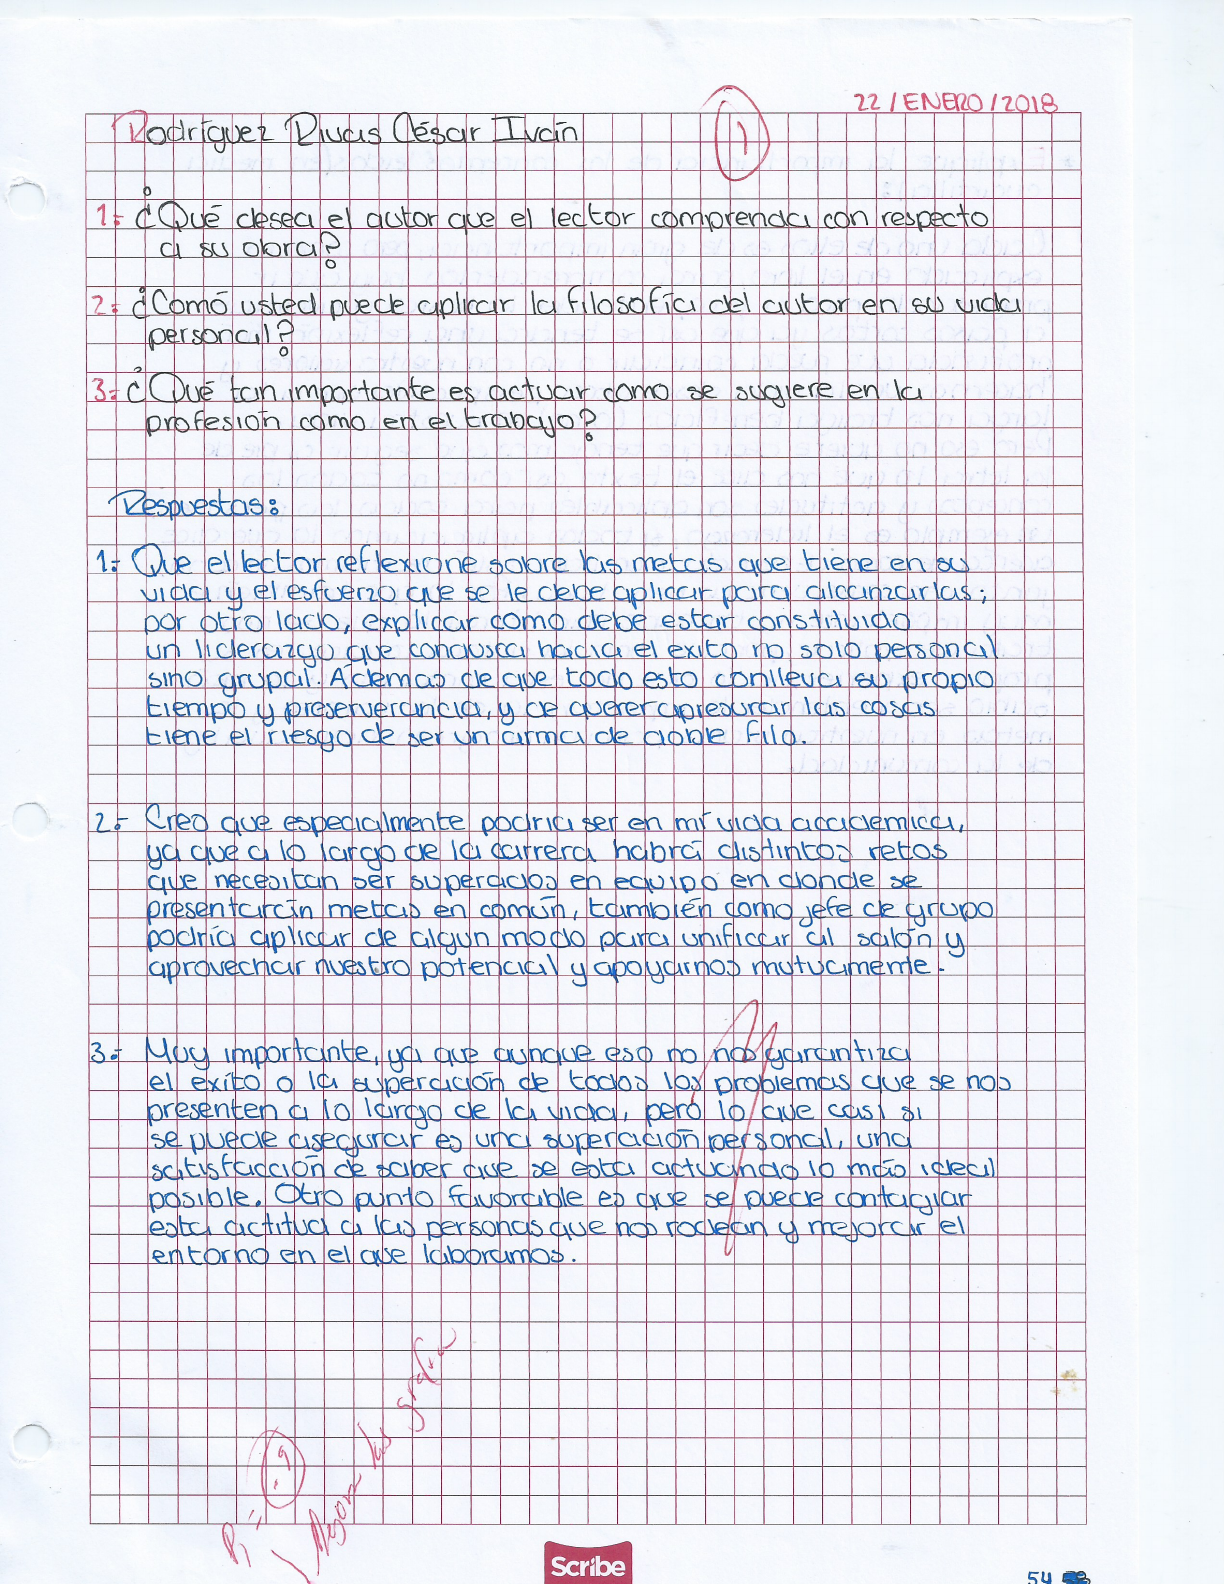 22/ENERO/2018
Rodríguez Rivas César Iván
1
1.- ¿Qué desea el autor que el lector comprenda con respecto
a su obra?
2.- ¿Comó usted puede aplicar la filosofía del autor en su vida
personal?
3.- ¿Qué tan importante es actuar como se sugiere en la
profesión como en el trabajo?
Respuestas:
1.- Que el lector reflexione sobre las metas que tiene en su
vida y el esfuerzo que se le debe aplicar para alcanzarlas;
por otro lado, explicar como debe estar constituido
un liderazgo que conduzca hacia el exito no solo personal
sino grupal. Ademas de que todo esto conlleva su propio
tiempo y preserverancia, y de querer apresurar las cosas
tiene el riesgo de ser un arma de doble filo.
2.- Creo que especialmente podria ser en mi vida academica,
ya que a lo largo de la carrera habrá distintos retos
que necesitan ser superados en equipo en donde se
presentarán metas en común, también como jefe de grupo
podría aplicar de algun modo para unificar al salón y
aprovechar nuestro potencial y apoyarnos mutuamente.
3.- Muy importante, ya que aunque eso no nos garantiza
el exíto o la superación de todos los problemas que se nos
presenten a lo largo de la vida, pero lo que casi si
se puede asegurar es una superación personal, una
satisfacción de saber que se esta actuando lo más ideal
posible. Otro punto favorable es que se puede contagiar
esta actitud a las personas que nos rodean y mejorar el
entorno en el que laboramos.
.9
las grafia
Scribe
54